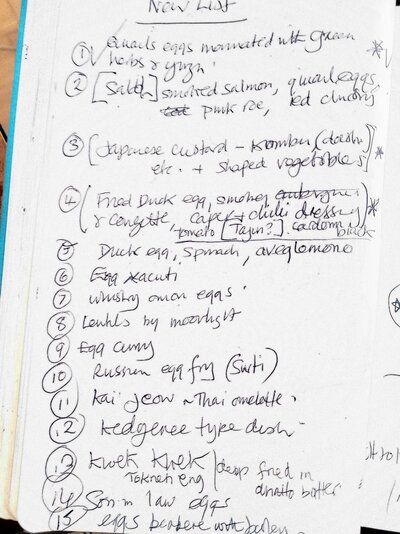 New List
① √ Quails eggs marinated with green
herbs & yuzu.
② [Salad] smoked salmon, quail eggs,
pink roe, red
③ [Japanese custard - Kombu (dashi)
etc. + shaped vegetables]
④ (Fried Duck egg, smokey aubergine
& courgette, caper + chilli dressing)
tomato [Tajin?] cardamom black
5 Duck egg, spinach, aveglomono
⑥ Egg xacuti
⑦ whisky onion eggs
⑧ Lentils by moonlight
⑨ Egg curry
⑩ Russian egg fry (Surti)
⑪ Kai Jeow ~ Thai omelette
12 Kedgeree type dish
13 Kwek Kwek deep fried in
Tokneneng batter
14 Son in law eggs
15 eggs with